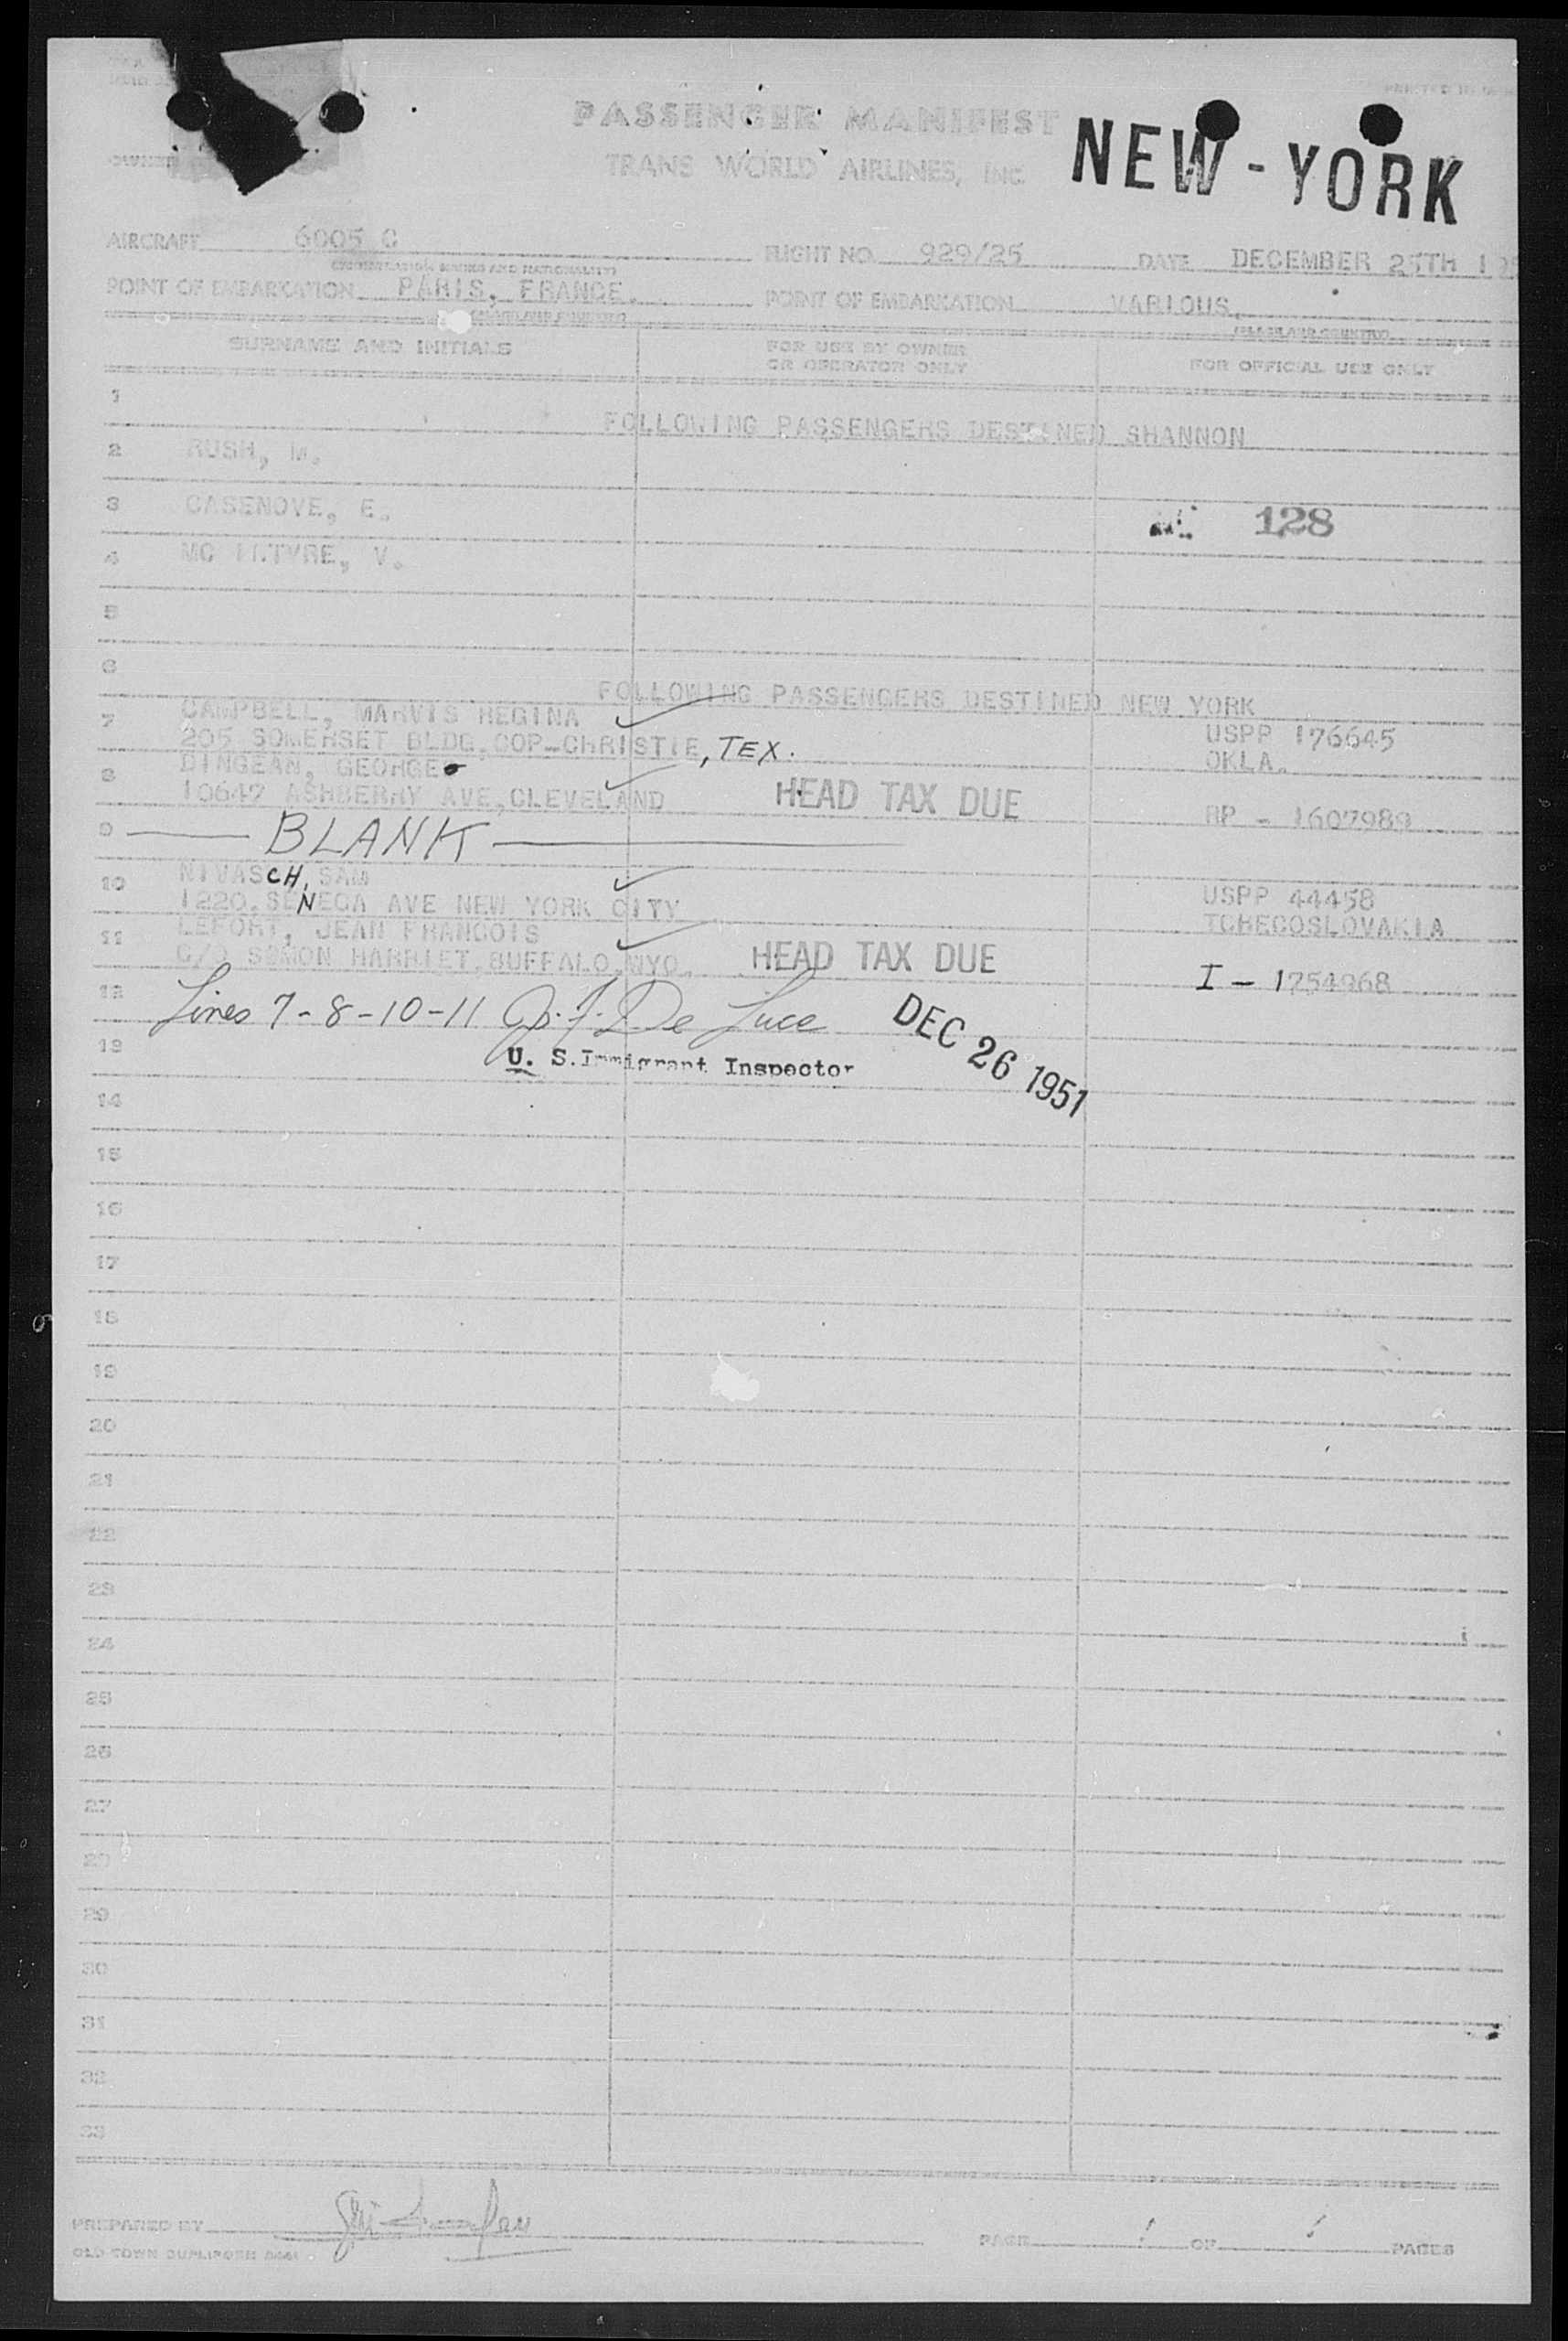 PRINTED IN
PASSENGER MANIFEST
NEW-YORK
OWNER
TRANS WORLD AIRLINES, INC.
AIRCRAFT 6005 C FLIGHT NO. 929/25 DATE DECEMBER 25TH 195
(REGISTRATION MARKS AND NATIONALITY)
POINT OF EMBARKATION PARIS, FRANCE. POINT OF EMBARKATION VARIOUS.
(PLACE AND COUNTRY) (PLACE AND COUNTRY)
SURNAME AND INITIALS FOR USE BY OWNER OR OPERATOR ONLY FOR OFFICIAL USE ONLY
1
FOLLOWING PASSENGERS DESTINED SHANNON
2 RUSH, M.
3 CASENOVE, E. 128
4 MC INTYRE, V.
5
6
FOLLOWING PASSENGERS DESTINED NEW YORK
7 CAMPBELL, MARVIS REGINA USPP 176645
205 SOMERSET BLDG.COP-CHRISTIE, TEX. OKLA.
8 DINGEAN, GEORGE
10647 ASHBERRY AVE,CLEVELAND HEAD TAX DUE RP - 1607989
9 BLANK
10 NIVASCH, SAM USPP 44458
1220.SENECA AVE NEW YORK CITY TCHECOSLOVAKIA
11 LEFORT, JEAN FRANCOIS
C/O SIMON HARRIET,BUFFALO.NYO. HEAD TAX DUE I - 1754968
12 Lines 7-8-10-11 De Luce DEC 26 1951
13 U. S. Immigrant Inspector
14
15
16
17
18
19
20
21
22
23
24
25
26
27
28
29
30
31
32
33
PREPARED BY PAGE 1 OF 1 PAGES
OLD TOWN DUPLIFORM